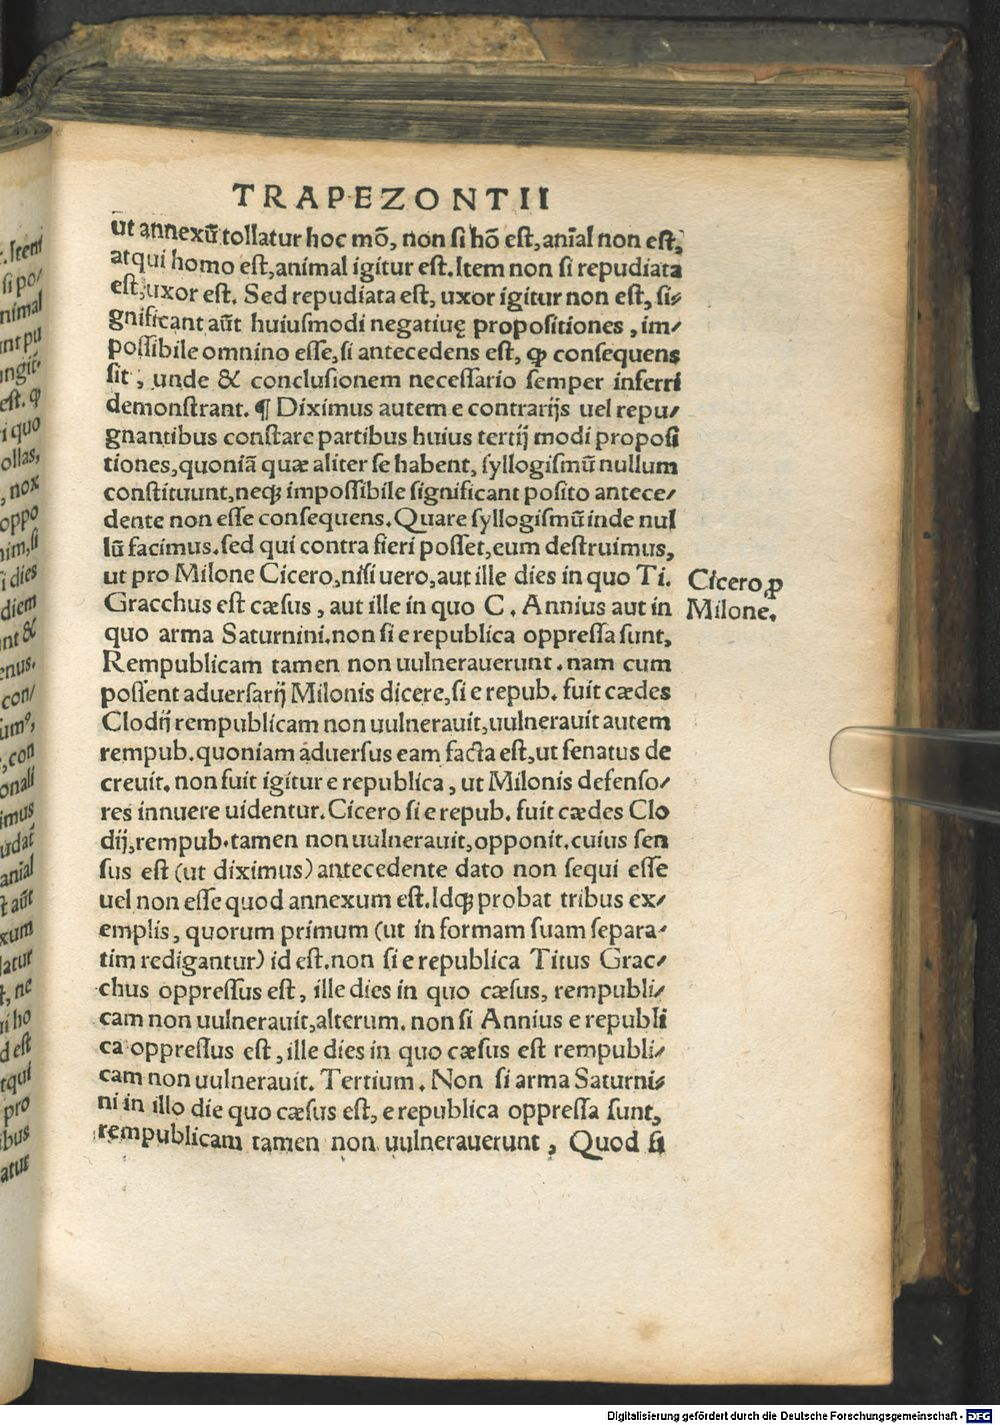 TRAPEZONTII
ut annexũ tollatur hoc mõ, non si hõ est, anĩal non est,
atqui homo est, animal igitur est. Item non si repudiata
est, uxor est. Sed repudiata est, uxor igitur non est, si⸗
gnificant aũt huiusmodi negatiuę propositiones, im⸗
possibile omnino esse, si antecedens est, ꝙ consequens
sit, unde & conclusionem necessario semper inferri
demonstrant. ¶ Diximus autem e contrarijs uel repu⸗
gnantibus constare partibus huius tertij modi proposi
tiones, quoniã quæ aliter se habent, syllogismũ nullum
constituunt, neqꝫ impossibile significant posito antece⸗
dente non esse consequens. Quare syllogismũ inde nul
lũ facimus. sed qui contra fieri posset, eum destruimus,
ut pro Milone Cicero, nisi uero, aut ille dies in quo Ti.
Gracchus est cæsus, aut ille in quo C. Annius aut in
quo arma Saturnini. non si e republica oppressa sunt,
Rempublicam tamen non uulnerauerunt. nam cum
possent aduersarij Milonis dicere, si e repub. fuit cædes
Clodij rempublicam non uulnerauit, uulnerauit autem
rempub. quoniam aduersus eam facta est, ut senatus de
creuit. non fuit igitur e republica, ut Milonis defenso⸗
res innuere uidentur. Cicero si e repub. fuit cædes Clo
dij, rempub. tamen non uulnerauit, opponit. cuius sen
sus est (ut diximus) antecedente dato non sequi esse
uel non esse quod annexum est. Idqꝫ probat tribus ex⸗
emplis, quorum primum (ut in formam suam separa⸗
tim redigantur) id est. non si e republica Titus Grac⸗
chus oppressus est, ille dies in quo cæsus, rempubli⸗
cam non uulnerauit, alterum. non si Annius e republi
ca oppressus est, ille dies in quo cæsus est rempubli⸗
cam non uulnerauit. Tertium. Non si arma Saturni⸗
ni in illo die quo cæsus est, e republica oppressa sunt,
rempublicam tamen non uulnerauerunt, Quod si
Cicero ꝓ
Milone.
. Item
si po⸗
nimal
nt pu
est. ꝙ
i quo
ollas,
, nox
oppo
nim, si
i dies
diem
nt &
enus.
con⸗
, con
onali
imus
anĩal
t aũt
xum
latur
t, ne
ui ho
d est
tqui
pro
ibus
atur
Digitalisierung gefördert durch die Deutsche Forschungsgemeinschaft - DFG